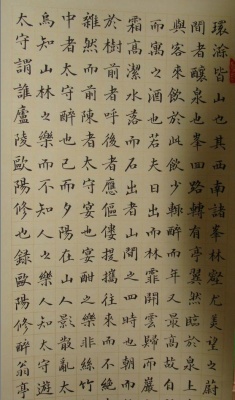 環滁皆山也其西南諸峯林壑尤美望之蔚
間者釀泉也峯回路轉有亭翼然臨於泉上
與客來飲於此飲少輒醉而年又最高故自
而寓之酒也若夫日出而林霏開雲歸而巖
霜高潔水落而石出者山間之四時也朝而
於樹前者呼後者應傴僂提攜往來而不
雜然而前陳者太守宴也宴酣之樂非絲竹
中者太守醉也已而夕陽在山人影散亂太
烏知山林之樂而不知人之樂人知太守遊
太守謂誰廬陵歐陽修也錄歐陽修醉翁亭